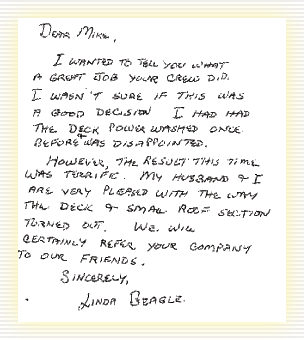 DEAR MIKE,
I WANTED TO TELL YOU WHAT
A GREAT JOB YOUR CREW DID.
I WASN'T SURE IF THIS WAS
A GOOD DECISION I HAD HAD
THE DECK POWER WASHED ONCE
BEFORE & WAS DISAPPOINTED.
HOWEVER, THE RESULT THIS TIME
WAS TERRIFIC. MY HUSBAND & I
ARE VERY PLEASED WITH THE WAY
THE DECK & SMALL ROOF SECTION
TURNED OUT. WE WILL
CERTAINLY REFER YOUR COMPANY
TO OUR FRIENDS.
SINCERELY,
LINDA BEAGLE